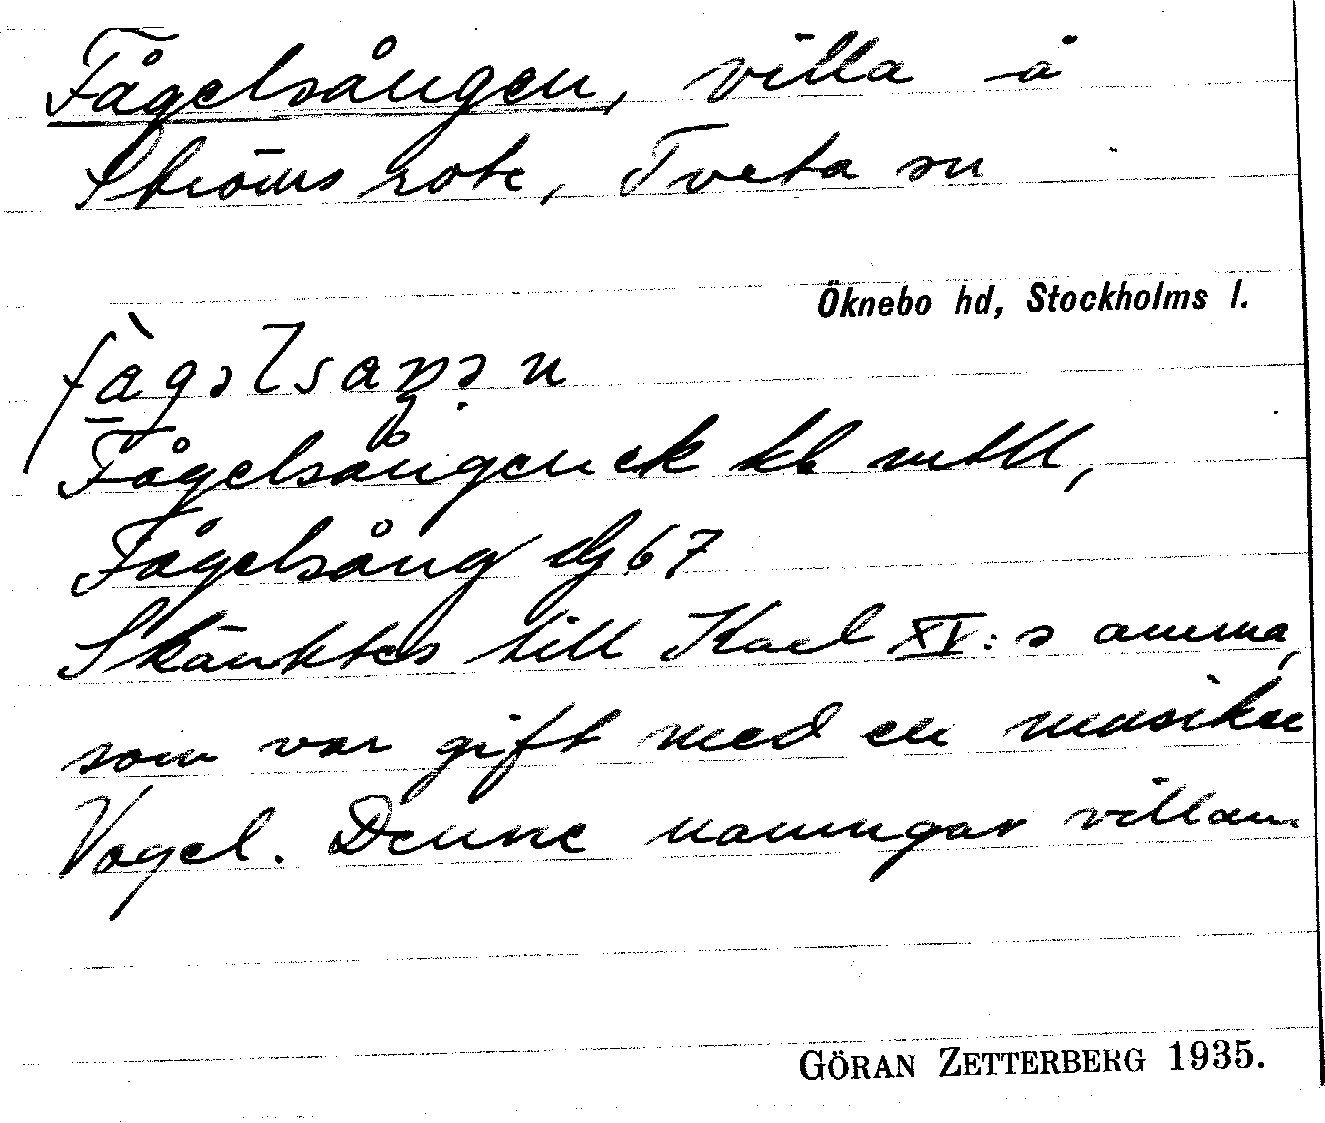 Fågelsången, villa å
Ströms rote, Tveta sn
Öknebo hd, Stockholms l.
fàgəlsaŋən
Fågelsången ek kb mtll,
Fågelsång dj 67
Skänktes till Karl XV:s amma,
som var gift med en musiker
Vogel. Denne namngav villan.
GÖRAN ZETTERBERG 1935.